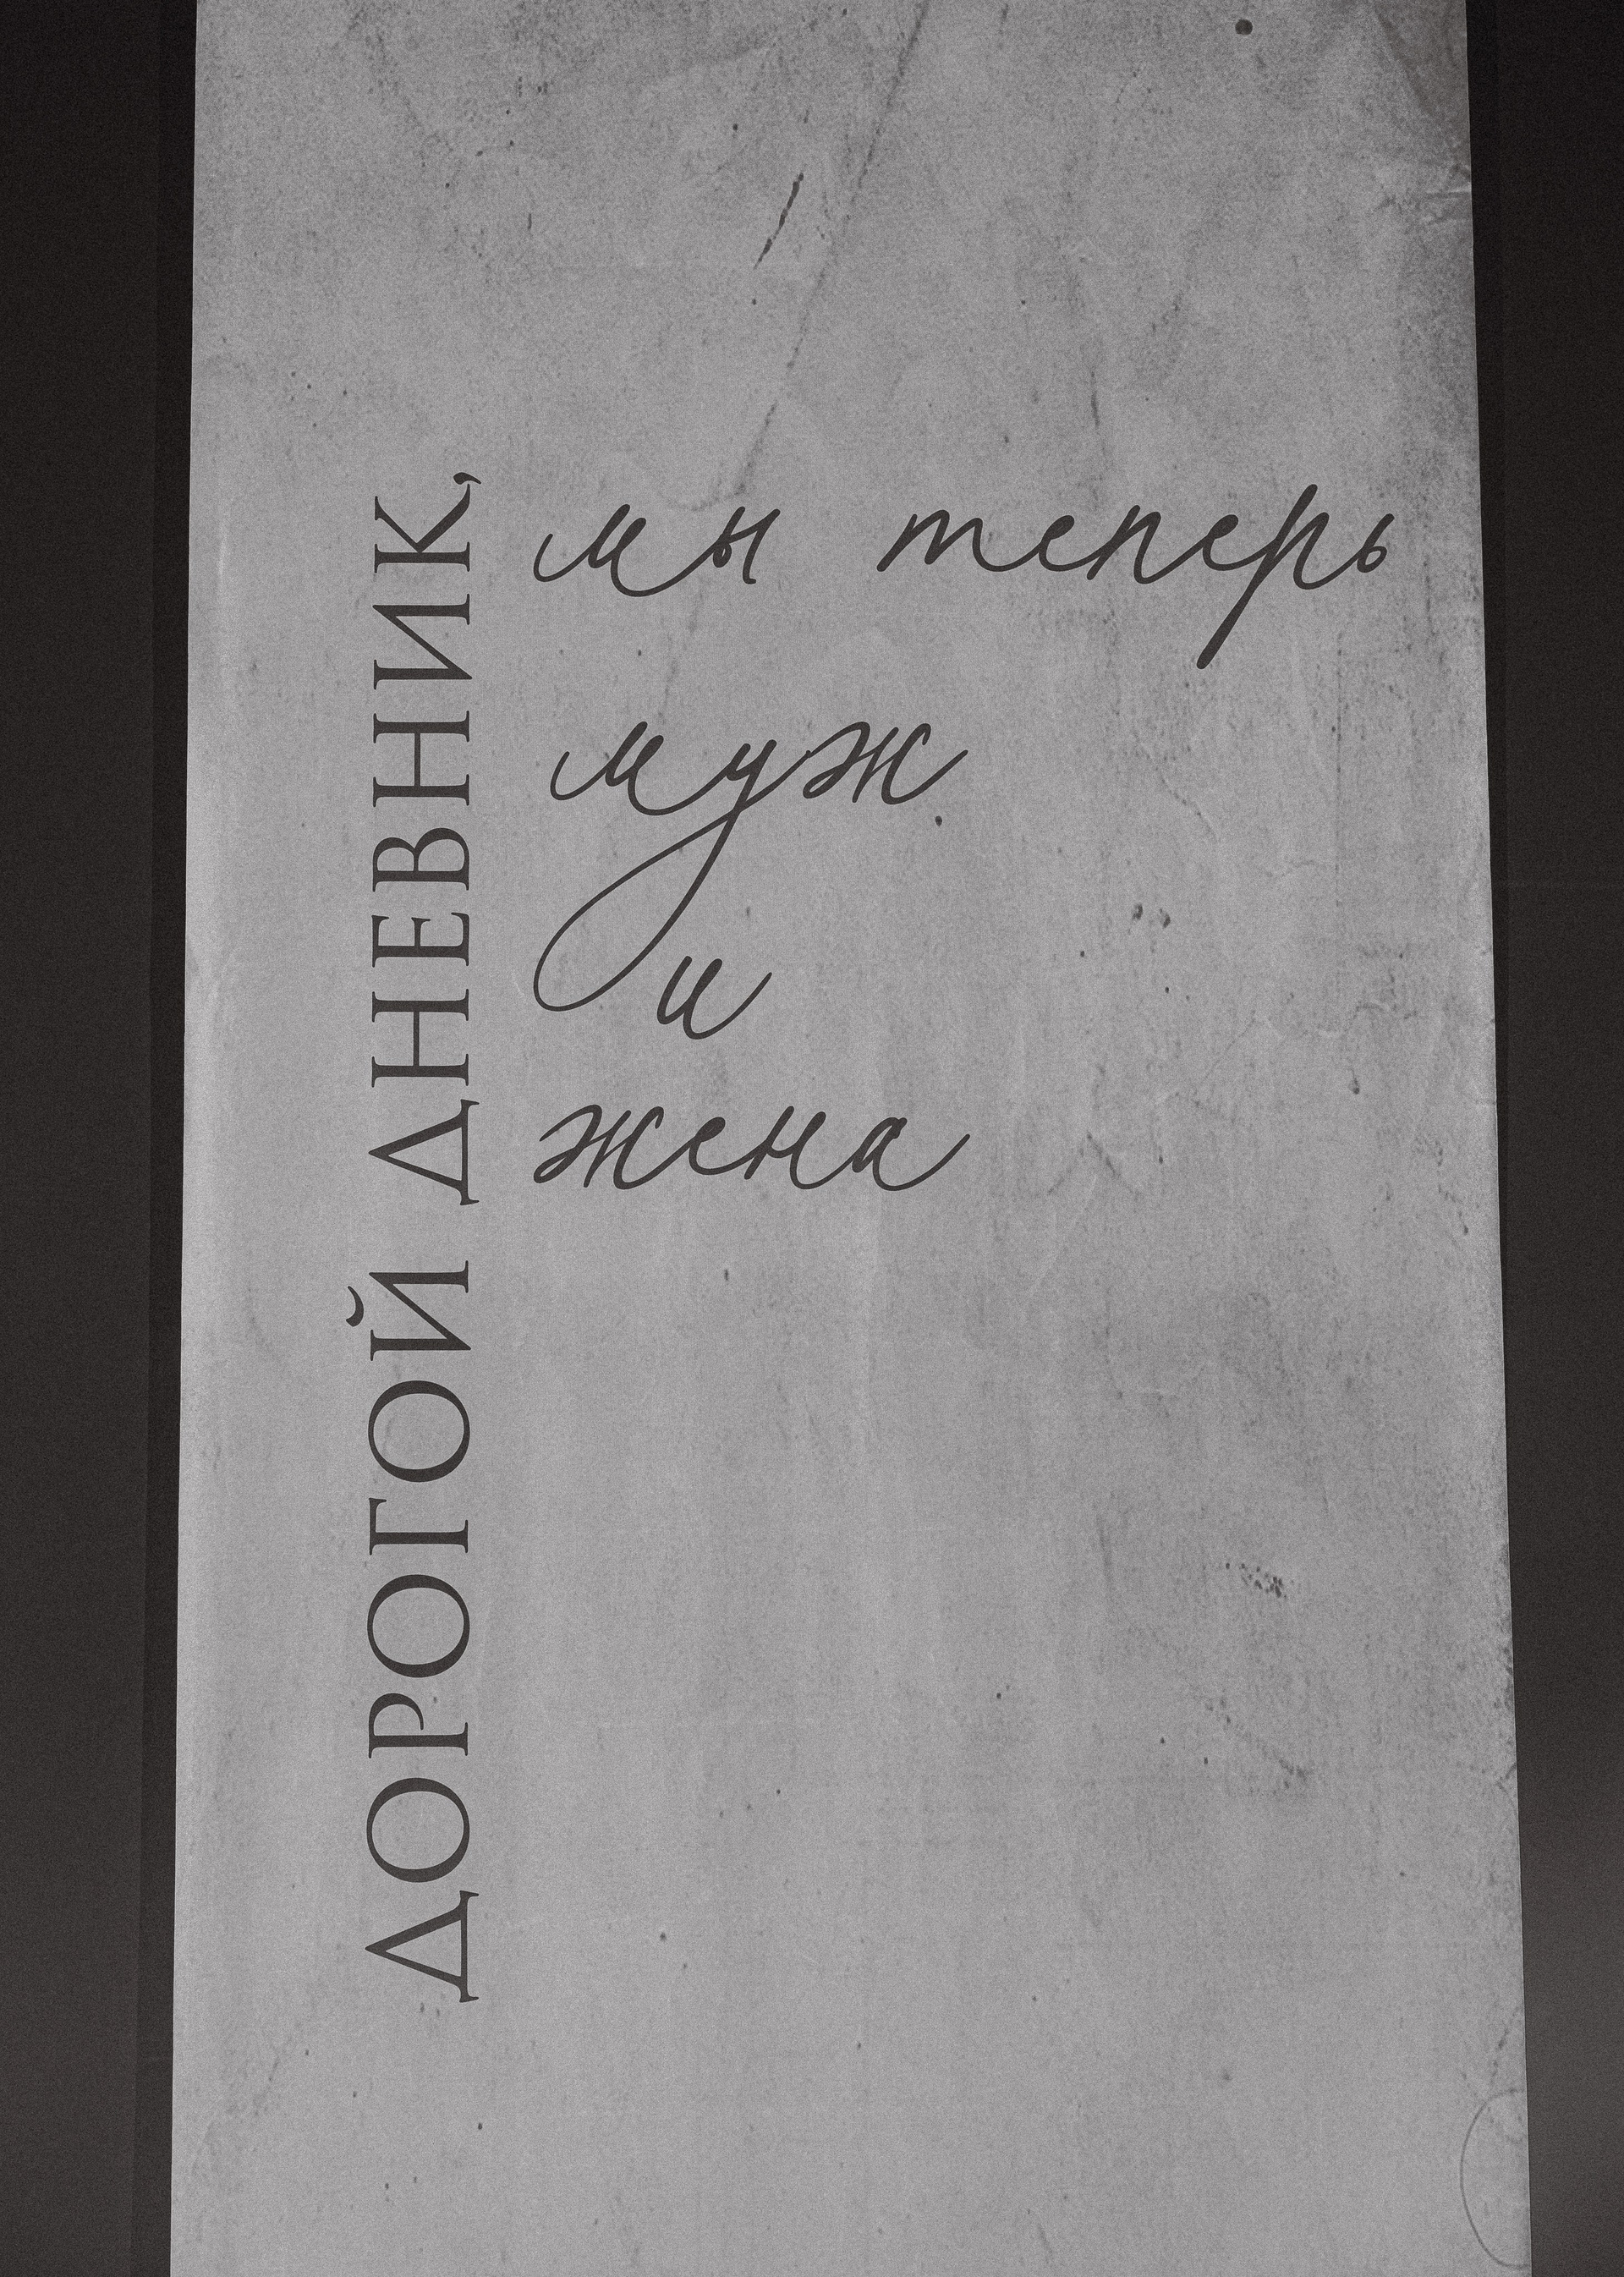 ДОРОГОЙ ДНЕВНИК,
мы теперь
муж
и
жена